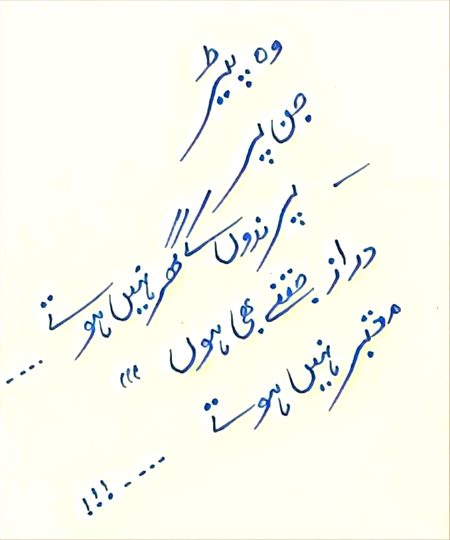 وہ پیڑ
جن پہ
پرندوں کے گھر نہیں ہوتے ....
دراز جتنے بھی ہوں ،،،
معتبر نہیں ہوتے .... !!!